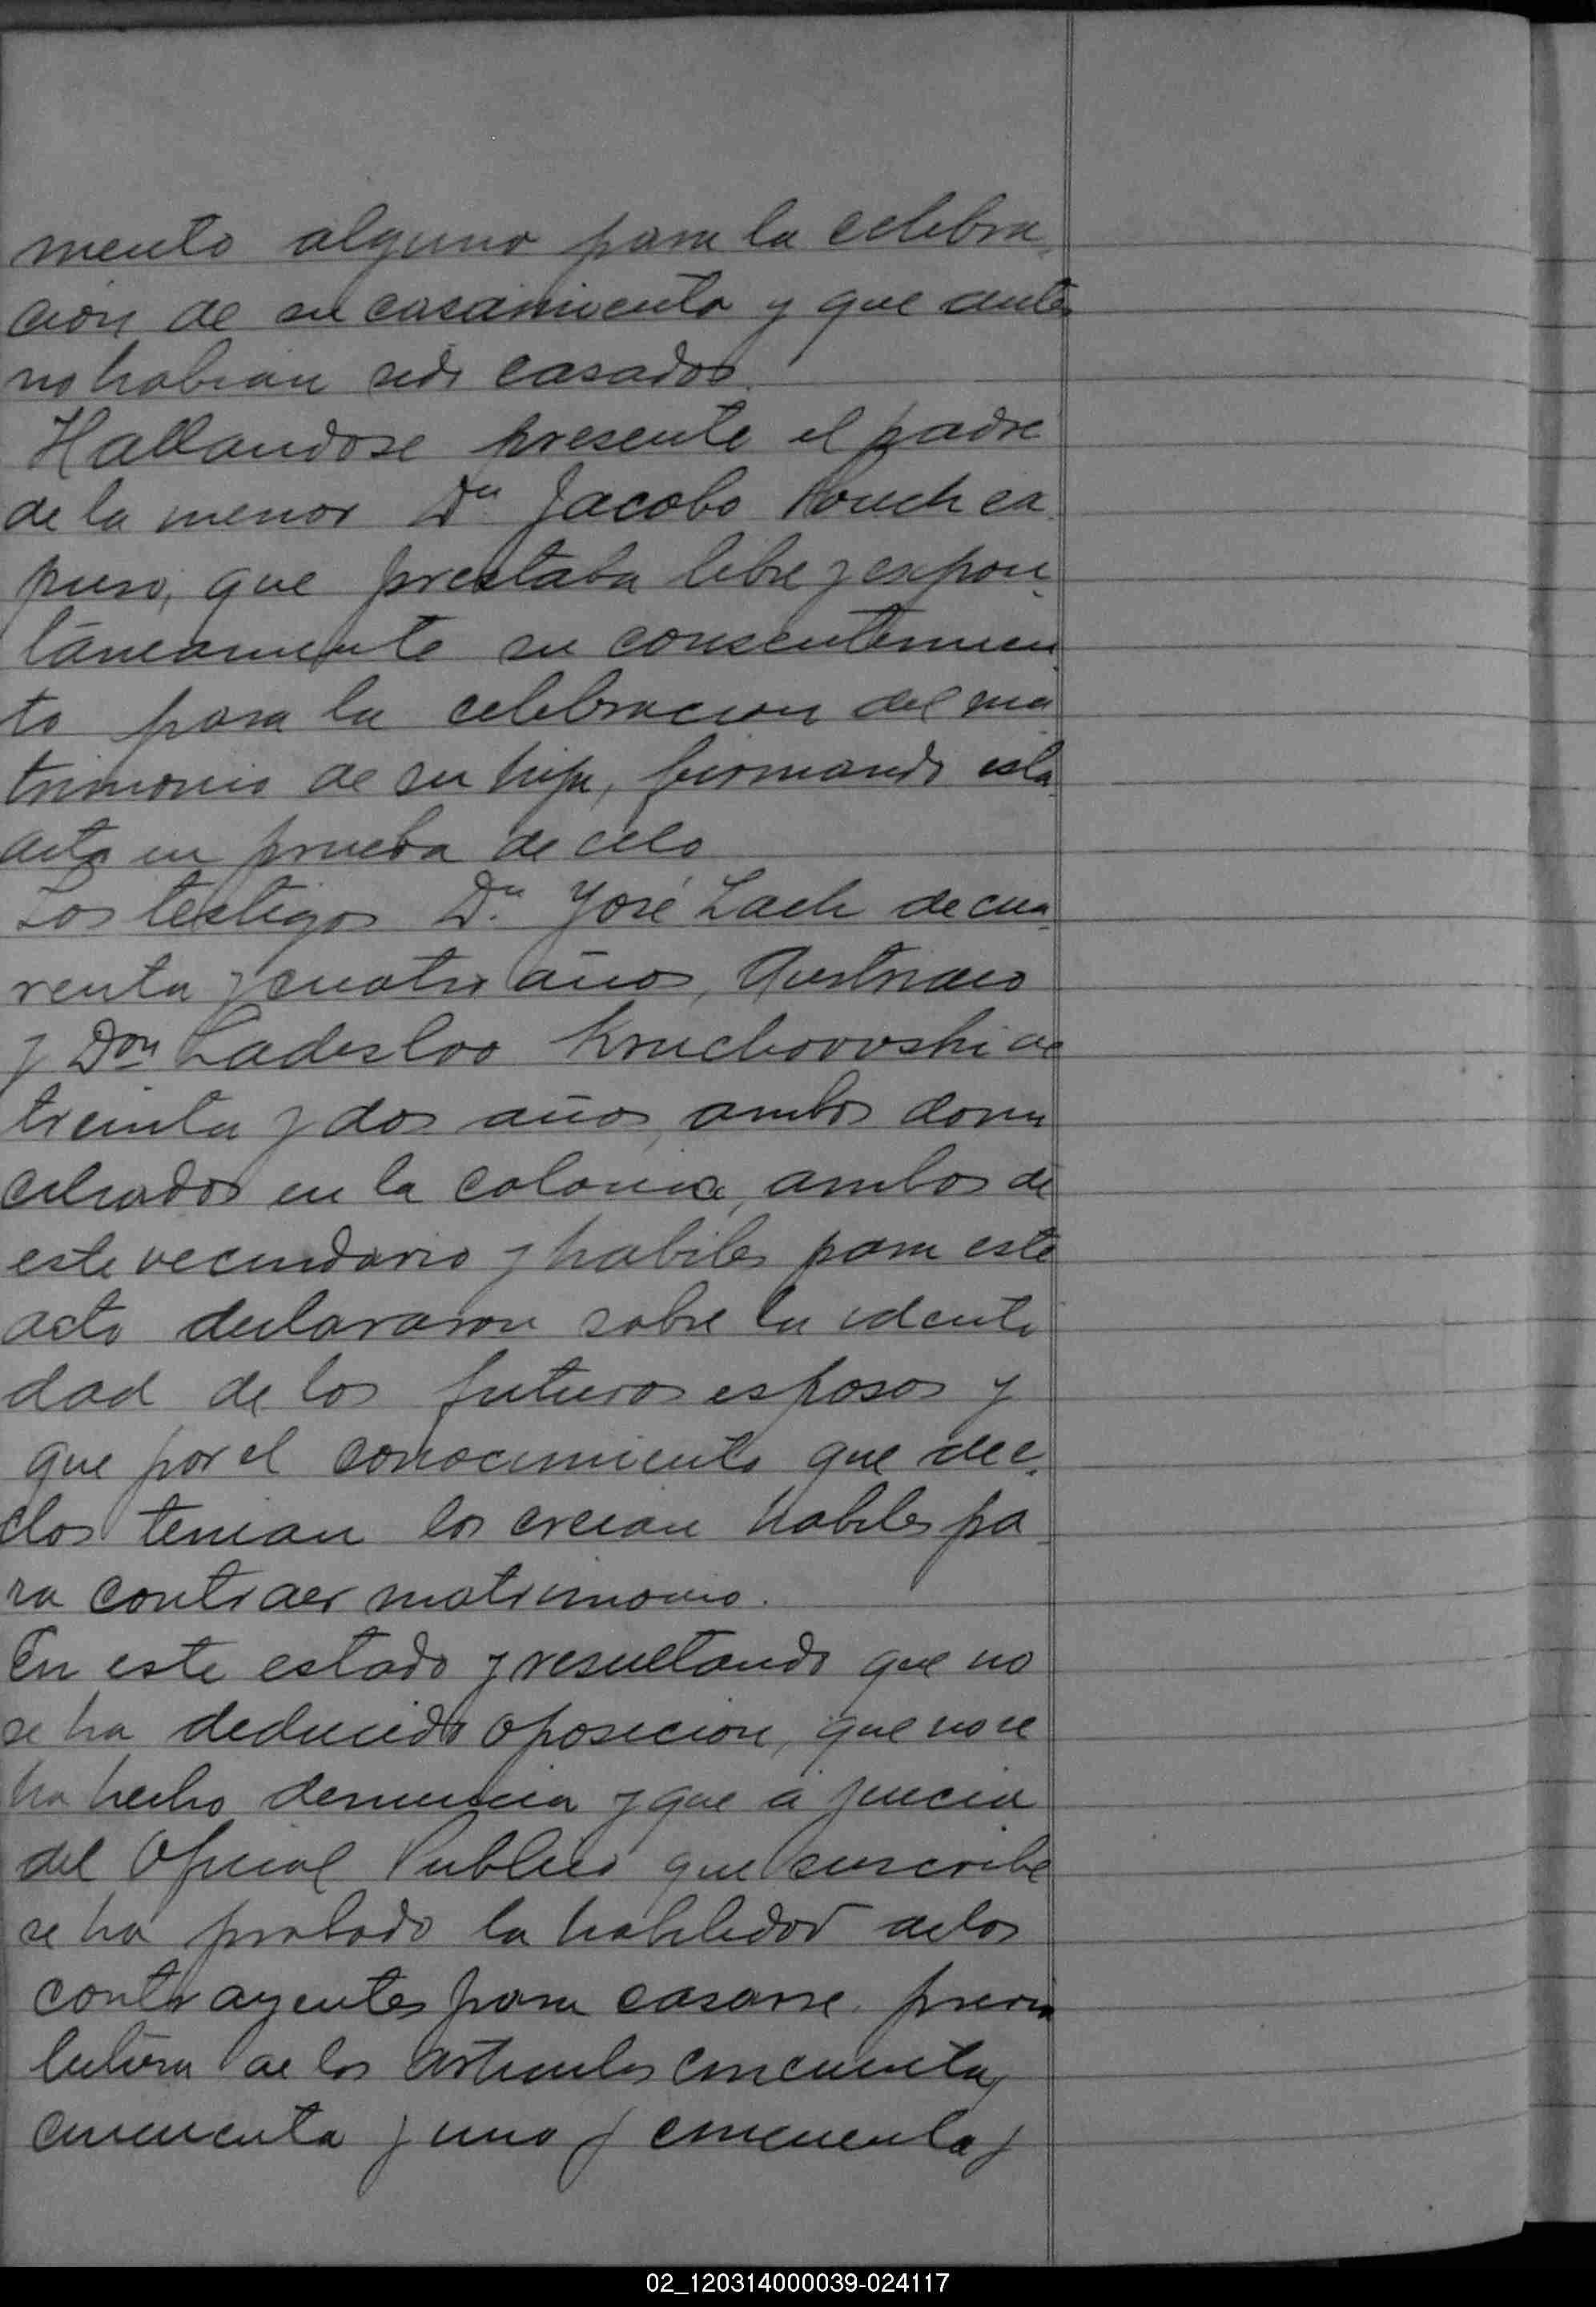 mento alguno para la celebra-
cion de su casamiento y que antes
no habian sido casados.
Hallandose presente el padre
de la menor Dn Jacobo ex-
puso, que prestaba libre y espon-
táneamente su consentimien-
to para la celebracion del ma
trimonio de su hija, firmando esta
acta en prueba de ello
Los testigos Dn José Lach de cua-
renta y cuatro años, Austriaco
y Don Ladislao Kruchowski de
treinta y dos años, ambos domi
ciliados en la colonia, ambos de
este vecindario y habiles para este
acto declararon sobre la identi
dad de los futuros esposos y
que por el conocimiento que de e-
llos tenian los creian habiles pa-
ra contraer matrimonio.
En este estado y resultando que no
se ha deducido oposicion, que no se
ha hecho denuncia y que á juicio
del Oficial Publico que suscribe
se ha probado la habilidad de los
contrayentes para casarse previa
letura de los articulos cincuenta,
cincuenta y uno y cincuenta y
02_120314000039-024117